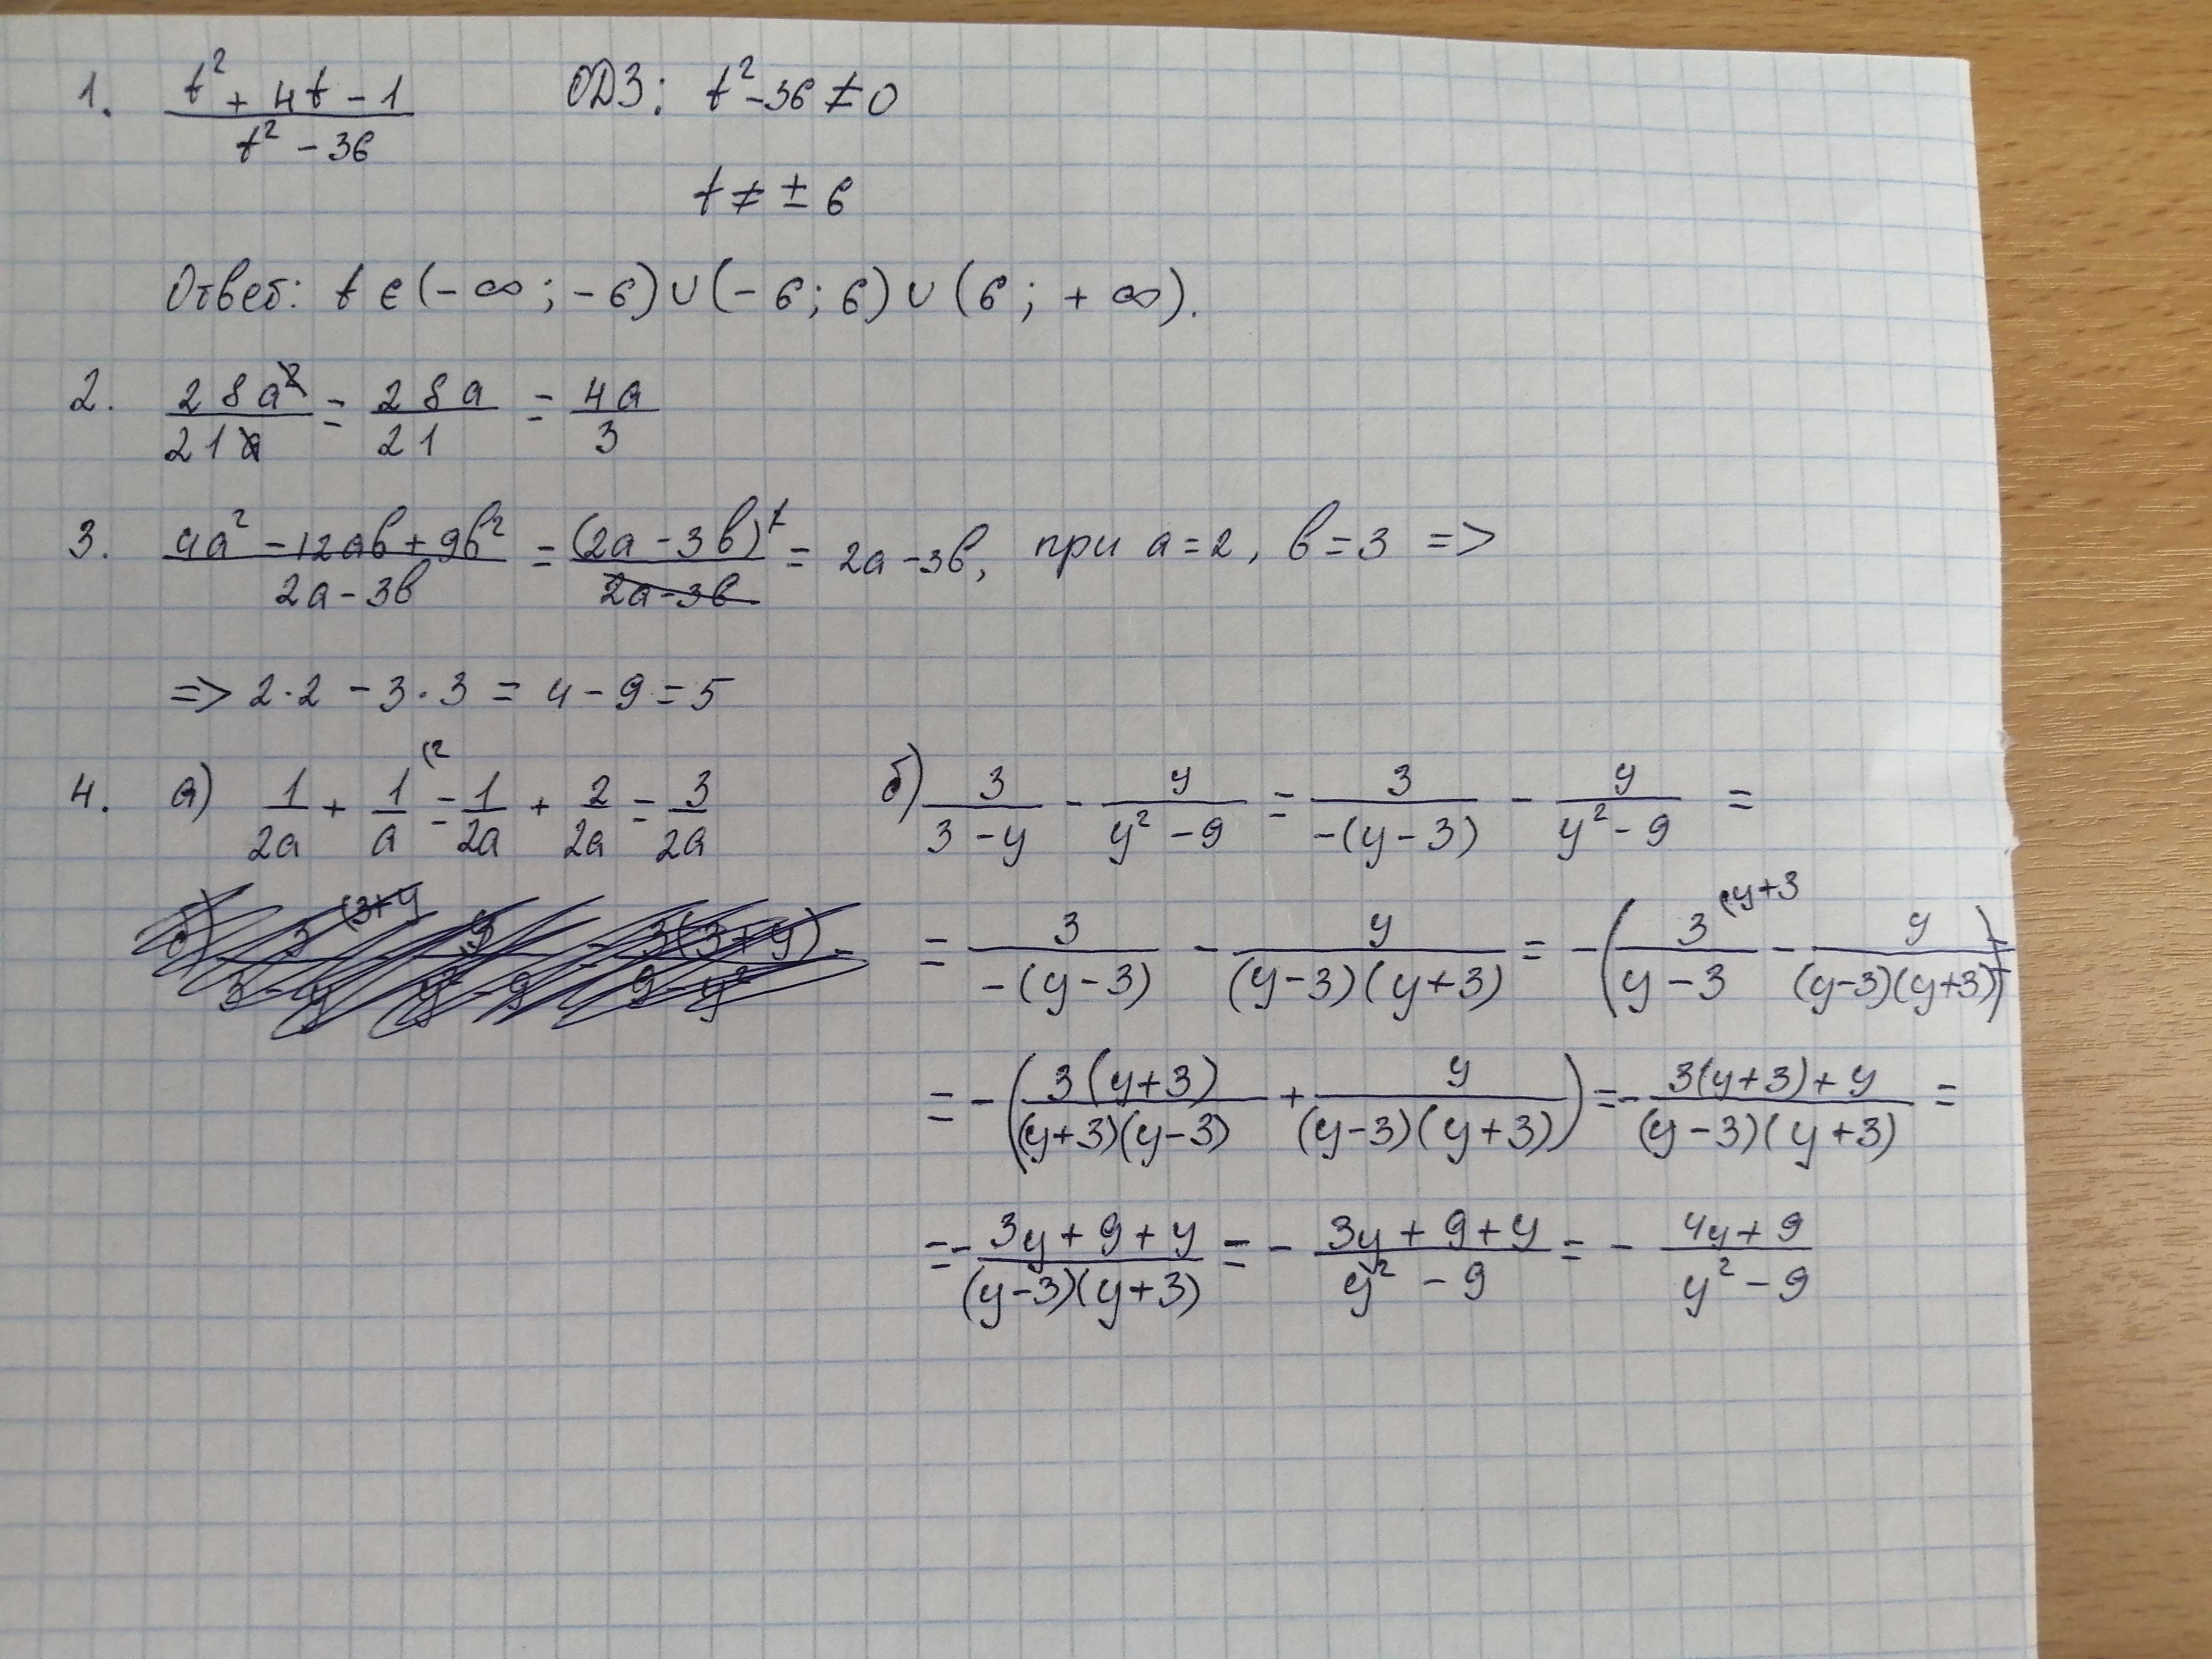 1. (t² + 4t - 1)/(t² - 36) ОДЗ: t² - 36 ≠ 0
t ≠ ± 6
Ответ: t ∈ (- ∞ ; - 6) ∪ (- 6 ; 6) ∪ (6 ; + ∞).
2. 28a²/21a = 28a/21 = 4a/3
3. (4a² - 12ab + 9b²)/(2a - 3b) = (2a - 3b)²/(2a - 3b) = 2a - 3b, при a = 2, b = 3 =>
=> 2·2 - 3·3 = 4 - 9 = 5
4. а) 1/2a + 1/a (2 = 1/2a + 2/2a = 3/2a
б) 3/(3 - y) - y/(y² - 9) = 3/(-(y - 3)) - y/(y² - 9) =
= 3/(-(y - 3)) - y/((y - 3)(y + 3)) = - (3/(y - 3) (y+3 - y/((y - 3)(y + 3))) =
= - (3(y + 3)/((y + 3)(y - 3)) + y/((y - 3)(y + 3))) = - (3(y + 3) + y)/((y - 3)(y + 3)) =
= - (3y + 9 + y)/((y - 3)(y + 3)) = - (3y + 9 + y)/(y² - 9) = - (4y + 9)/(y² - 9)